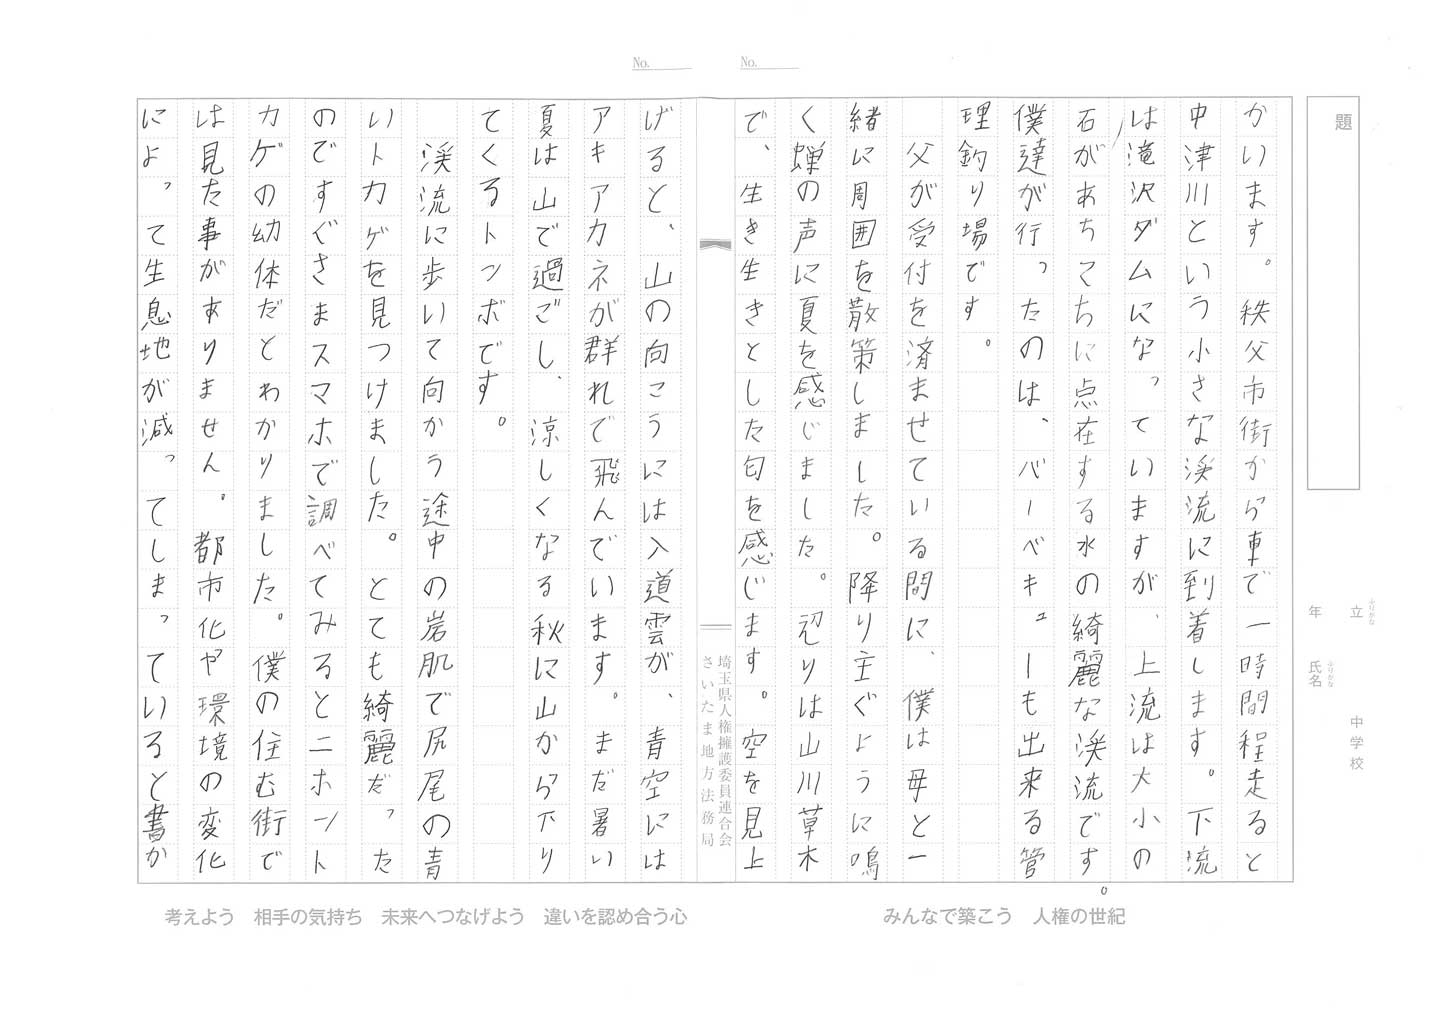 No.
No.
題
ふりがな
立
中学校
年
ふりがな
氏名
かいます。秩父市街から車で一時間程走ると
中津川という小さな渓流に到着します。下流
は滝沢ダムになっていますが、上流は大小の
石があちこちに点在する水の綺麗な渓流です。
僕達が行ったのは、バーベキューも出来る管
理釣り場です。
父が受付を済ませている間に、僕は母と一
緒に周囲を散策しました。降り主ぐように鳴
く蝉の声に夏を感じました。辺りは山川草木
で、生き生きとした匂を感じます。空を見上
埼玉県人権擁護委員連合会
さいたま地方法務局
げると、山の向こうには入道雲が、青空には
アキアカネが群れで飛んでいます。まだ暑い
夏は山で過ごし、涼しくなる秋に山から下り
てくるトンボです。
渓流に歩いて向かう途中の岩肌で尻尾の青
いトカゲを見つけました。とても綺麗だった
のですぐさまスマホで調べてみるとニホント
カゲの幼体だとわかりました。僕の住む街で
は見た事がありません。都市化や環境の変化
によって生息地が減ってしまっていると書か
みんなで築こう　人権の世紀
考えよう　相手の気持ち　未来へつなげよう　違いを認め合う心